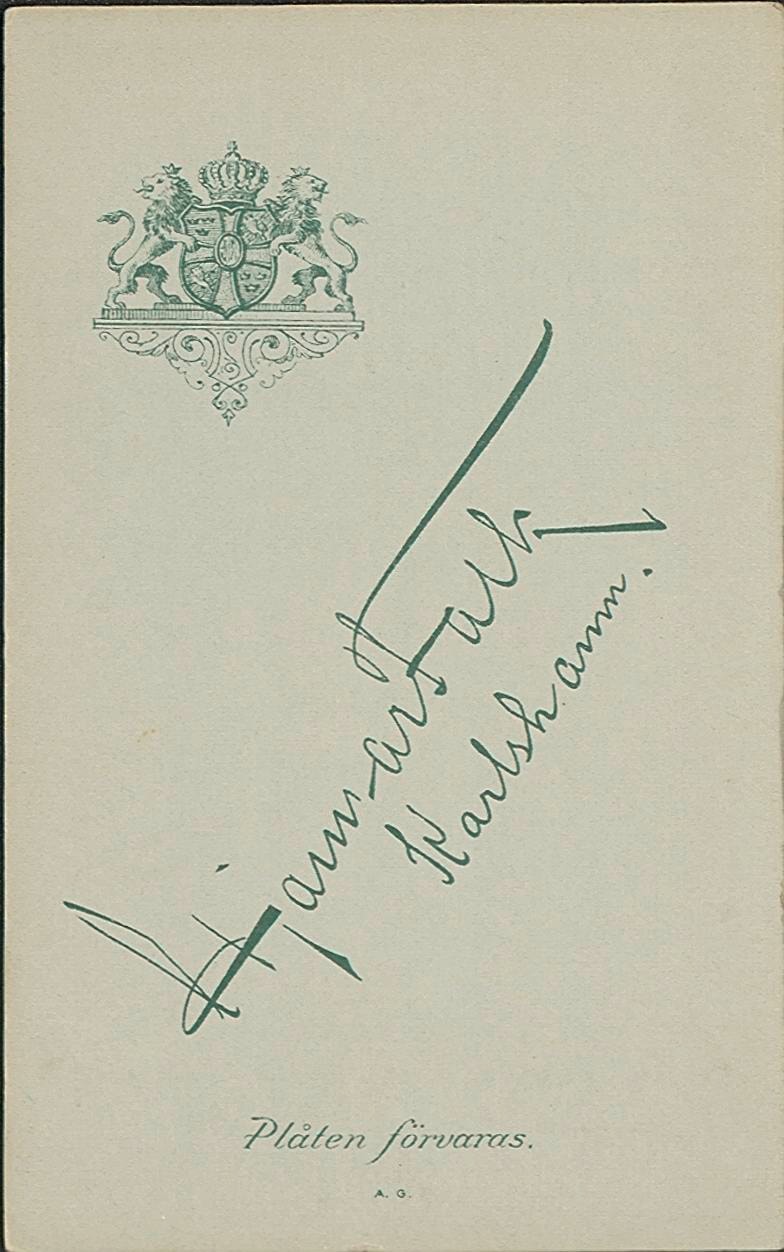 Hjalmar Falk
Karlshamn.
Plåten förvaras.
A. G.